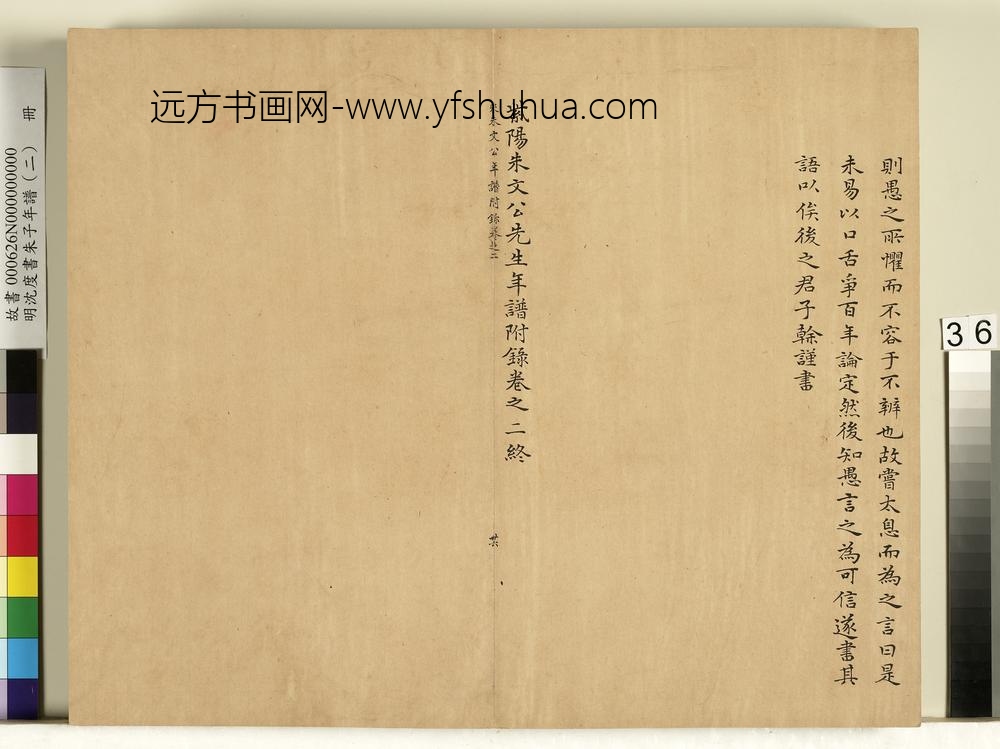 远方书画网-www.yfshuhua.com
則愚之所懼而不容于不辯也故嘗太息而為之言曰是
未易以口舌爭百年論定然後知愚言之為可信遂書其
語以俟後之君子榦謹書
紫陽朱文公先生年譜附錄卷之二終
朱文公年譜附錄卷之二
故書 000626N000000000
明沈度書朱子年譜(二) 冊
36